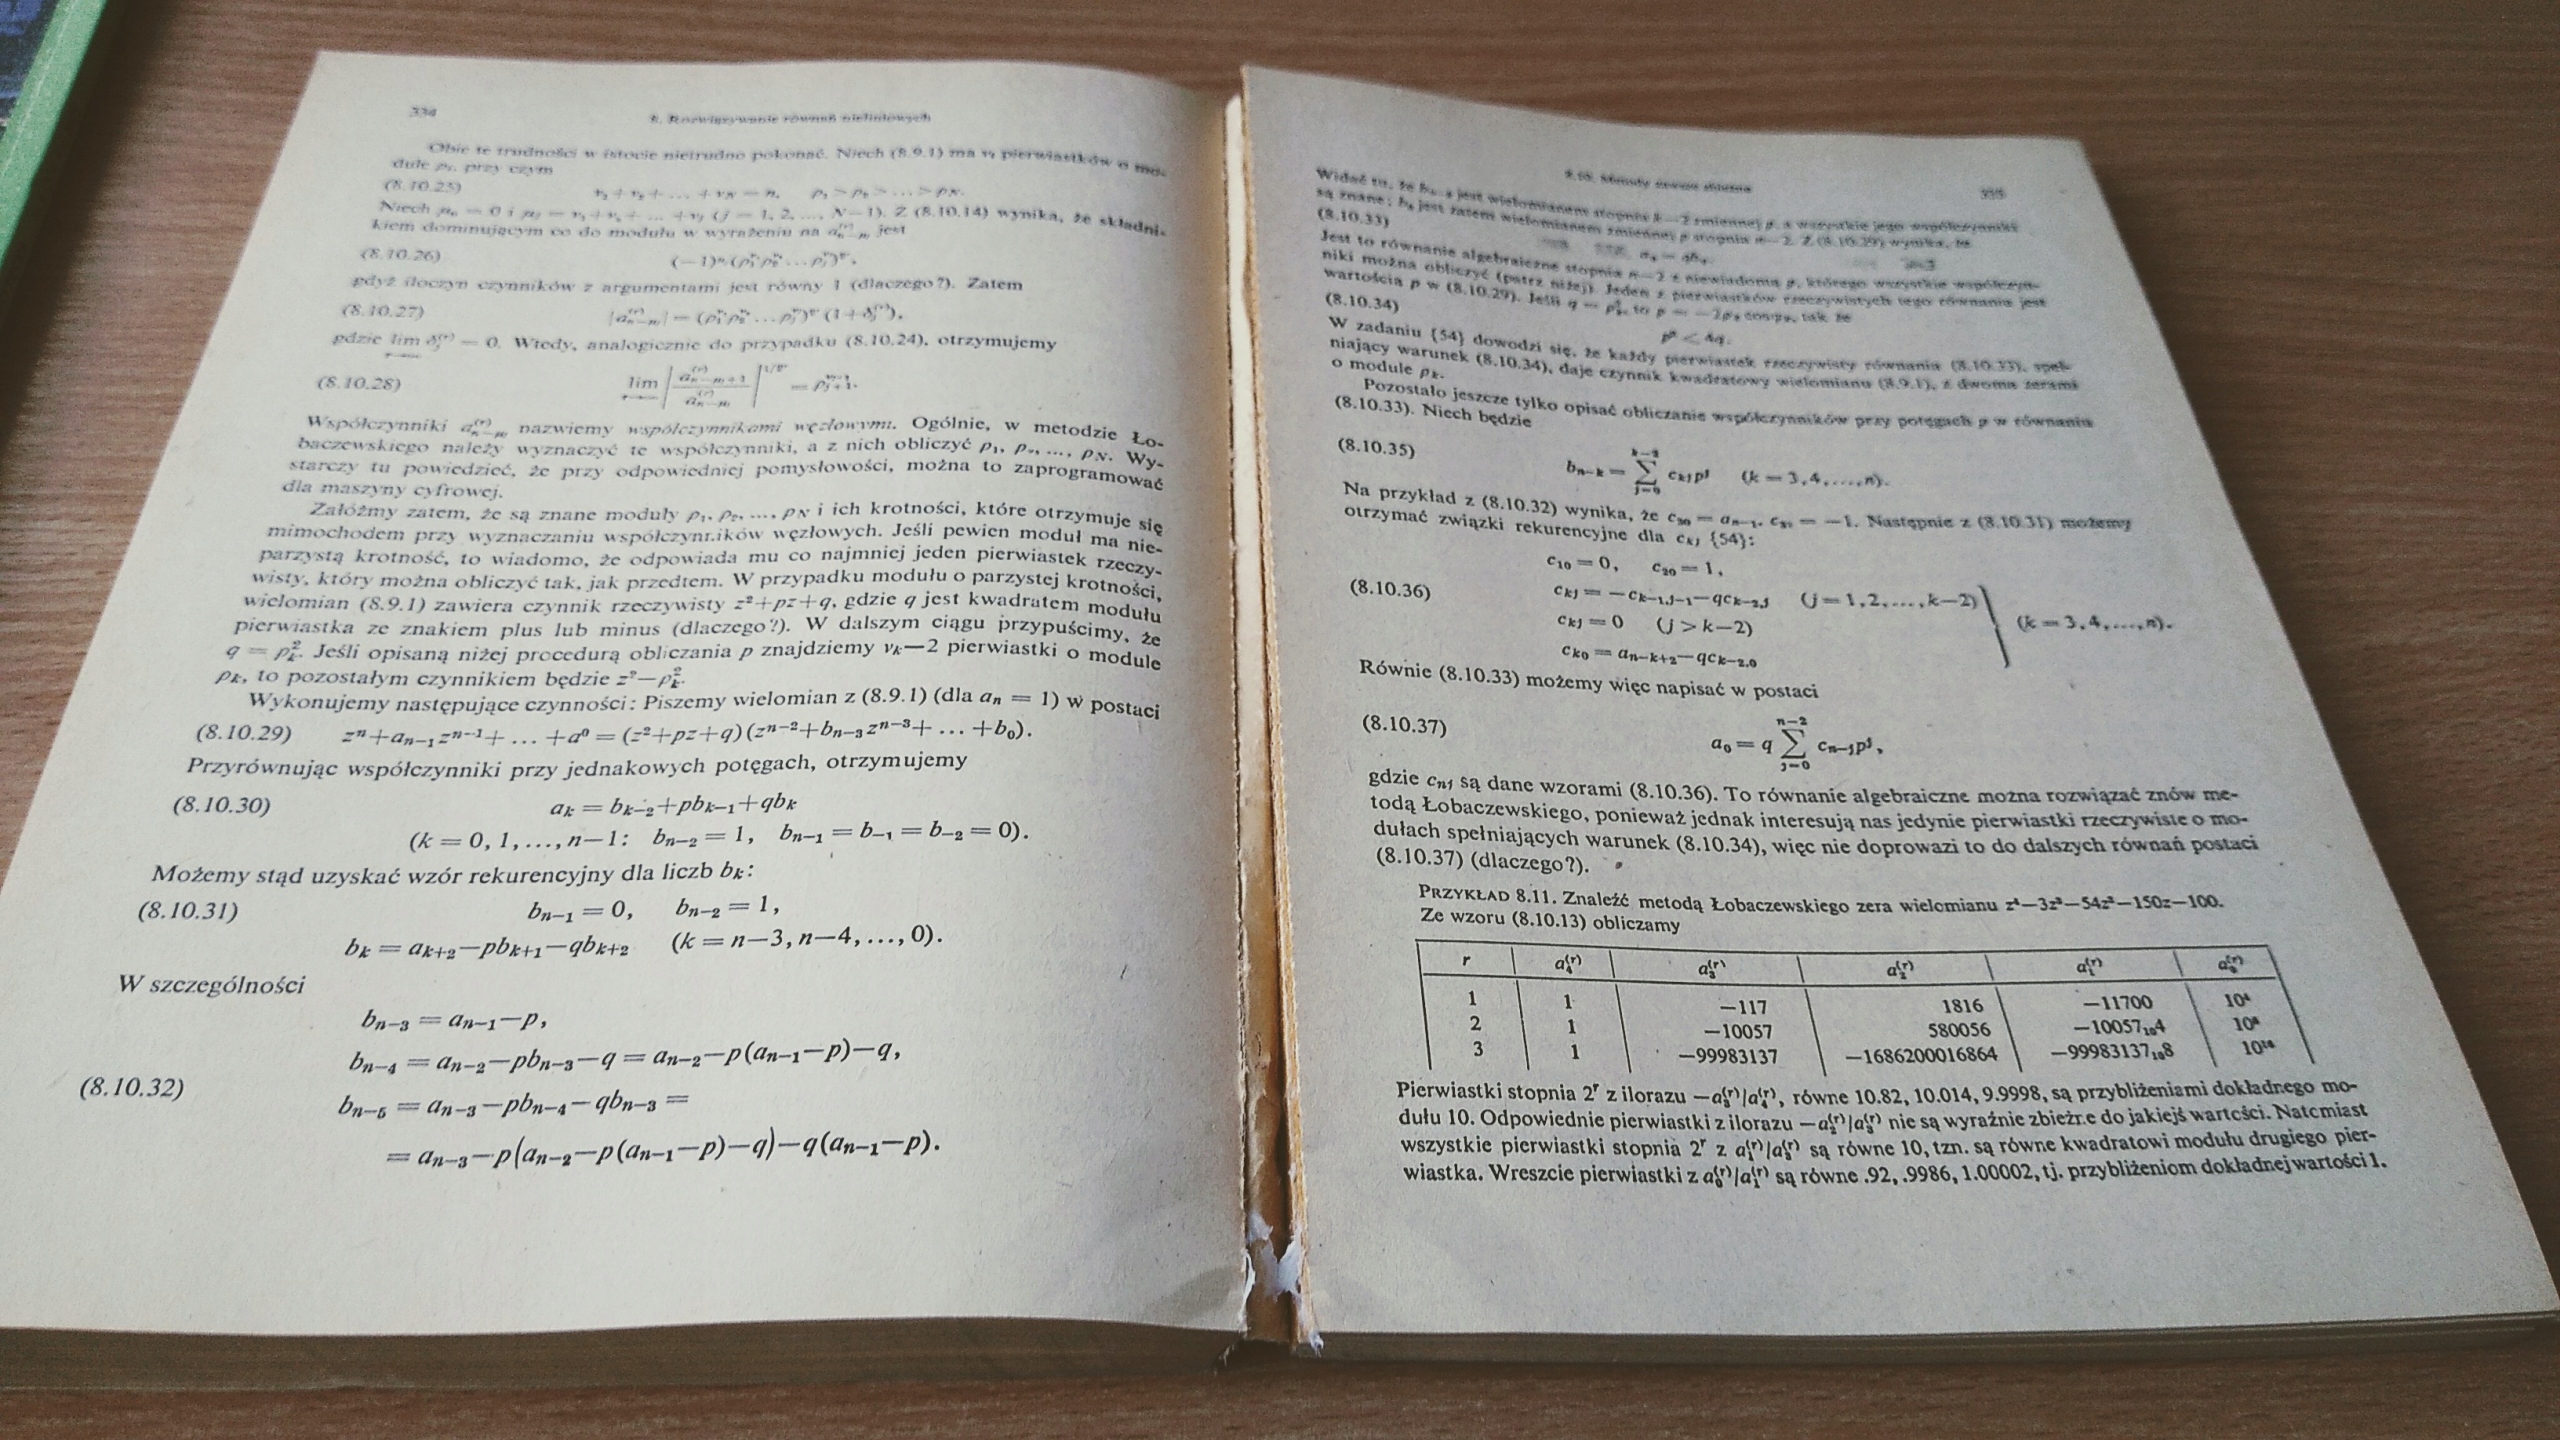 334
8. Rozwiązywanie równań nieliniowych
Obie te trudności w istocie nietrudno pokonać. Niech (8.9.1) ma pierwiastków o mo-
dule przy czym
(8.10.25)
Niech Z (8.10.14) wynika, że składni-
kiem dominującym co do modułu w wyrażeniu na jest
(8.10.26)
gdyż iloczyn czynników z argumentami jest równy 1 (dlaczego?). Zatem
(8.10.27)
gdzie lim = 0. Wtedy, analogicznie do przypadku (8.10.24), otrzymujemy
(8.10.28) lim
Współczynniki nazwiemy współczynnikami węzłowymi. Ogólnie, w metodzie Ło-
baczewskiego należy wyznaczyć te współczynniki, a z nich obliczyć ρ₁, ρ₂, ..., ρN. Wy-
starczy tu powiedzieć, że przy odpowiedniej pomysłowości, można to zaprogramować
dla maszyny cyfrowej.
Załóżmy zatem, że są znane moduły ρ₁, ρ₂, ..., ρN i ich krotności, które otrzymuje się
mimochodem przy wyznaczaniu współczynników węzłowych. Jeśli pewien moduł ma nie-
parzystą krotność, to wiadomo, że odpowiada mu co najmniej jeden pierwiastek rzeczy-
wisty, który można obliczyć tak, jak przedtem. W przypadku modułu o parzystej krotności,
wielomian (8.9.1) zawiera czynnik rzeczywisty z²+pz+q, gdzie q jest kwadratem modułu
pierwiastka ze znakiem plus lub minus (dlaczego?). W dalszym ciągu przypuścimy, że
q = ρₖ². Jeśli opisaną niżej procedurą obliczania p znajdziemy νₖ—2 pierwiastki o module
ρₖ, to pozostałym czynnikiem będzie z²—ρₖ².
Wykonujemy następujące czynności: Piszemy wielomian z (8.9.1) (dla aₙ = 1) w postaci
(8.10.29) zⁿ+aₙ₋₁zⁿ⁻¹+ ... +a⁰ = (z²+pz+q)(zⁿ⁻²+bₙ₋₃zⁿ⁻³+ ... +b₀).
Przyrównując współczynniki przy jednakowych potęgach, otrzymujemy
(8.10.30) aₖ = bₖ₋₂+pbₖ₋₁+qbₖ
(k = 0, 1, ..., n—1; bₙ₋₂ = 1, bₙ₋₁ = b₋₁ = b₋₂ = 0).
Możemy stąd uzyskać wzór rekurencyjny dla liczb bₖ:
(8.10.31) bₙ₋₁ = 0, bₙ₋₂ = 1,
bₖ = aₖ₊₂—pbₖ₊₁—qbₖ₊₂ (k = n—3, n—4, ..., 0).
W szczególności
bₙ₋₃ = aₙ₋₁—p,
bₙ₋₄ = aₙ₋₂—pbₙ₋₃—q = aₙ₋₂—p(aₙ₋₁—p)—q,
(8.10.32)
bₙ₋₅ = aₙ₋₃—pbₙ₋₄—qbₙ₋₃ =
= aₙ₋₃—p(aₙ₋₂—p(aₙ₋₁—p)—q)—q(aₙ₋₁—p).
335
Widać tu, że jest wielomianem stopnia k—2 zmiennej p, a wszystkie jego współczynniki
są znane; jest zatem wielomianem zmiennej p stopnia n—2. Z (8.10.29) wynika, że
(8.10.33) a₀ = qb₀.
Jest to równanie algebraiczne stopnia n—2 z niewiadomą p, którego wszystkie współczyn-
niki można obliczyć (patrz niżej). Jeden z pierwiastków rzeczywistych tego równania jest
wartością p w (8.10.29). Jeśli q = ρₖ², to tak że
(8.10.34) p² < 4q.
W zadaniu {54} dowodzi się, że każdy pierwiastek rzeczywisty równania (8.10.33), speł-
niający warunek (8.10.34), daje czynnik kwadratowy wielomianu (8.9.1), z dwoma zerami
o module ρₖ.
Pozostało jeszcze tylko opisać obliczanie współczynników przy potęgach p w równaniu
(8.10.33). Niech będzie
(8.10.35) bₙ₋ₖ = ∑ cₖⱼpʲ (k = 3, 4, ..., n).
Na przykład z (8.10.32) wynika, że c₃₀ = aₙ₋₁, c₃₁ = —1. Następnie z (8.10.31) możemy
otrzymać związki rekurencyjne dla cₖⱼ {54}:
c₁₀ = 0, c₂₀ = 1,
(8.10.36) cₖⱼ = —cₖ₋₁,ⱼ₋₁—qcₖ₋₂,ⱼ (j = 1, 2, ..., k—2)
cₖⱼ = 0 (j > k—2) (k = 3, 4, ..., n).
cₖ₀ = aₙ₋ₖ₊₂—qcₖ₋₂,₀
Równie (8.10.33) możemy więc napisać w postaci
(8.10.37) a₀ = q ∑ⱼ₌₀ⁿ⁻² cₙ₋ⱼpʲ,
gdzie cₙⱼ są dane wzorami (8.10.36). To równanie algebraiczne można rozwiązać znów me-
todą Łobaczewskiego, ponieważ jednak interesują nas jedynie pierwiastki rzeczywiste o mo-
dułach spełniających warunek (8.10.34), więc nie doprowazi to do dalszych równań postaci
(8.10.37) (dlaczego?).
PRZYKŁAD 8.11. Znaleźć metodą Łobaczewskiego zera wielomianu z⁴—3z³—54z²—150z—100.
Ze wzoru (8.10.13) obliczamy
r a₄⁽ʳ⁾ a₃⁽ʳ⁾ a₂⁽ʳ⁾ a₁⁽ʳ⁾ a₀⁽ʳ⁾
1 1 —117 1816 —11700 10⁴
2 1 —10057 580056 —10057₁₀4 10⁸
3 1 —99983137 —1686200016864 —99983137₁₀8 10¹⁶
Pierwiastki stopnia 2ʳ z ilorazu —a₃⁽ʳ⁾/a₄⁽ʳ⁾, równe 10.82, 10.014, 9.9998, są przybliżeniami dokładnego mo-
dułu 10. Odpowiednie pierwiastki z ilorazu —a₂⁽ʳ⁾/a₃⁽ʳ⁾ nie są wyraźnie zbieżne do jakiejś wartości. Natomiast
wszystkie pierwiastki stopnia 2ʳ z a₁⁽ʳ⁾/a₃⁽ʳ⁾ są równe 10, tzn. są równe kwadratowi modułu drugiego pier-
wiastka. Wreszcie pierwiastki z a₀⁽ʳ⁾/a₁⁽ʳ⁾ są równe .92, .9986, 1.00002, tj. przybliżeniom dokładnej wartości 1.